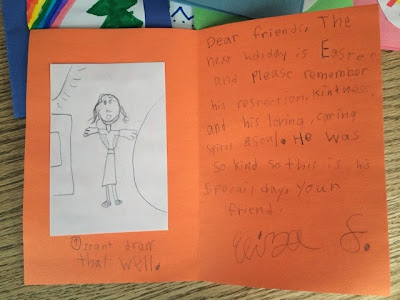 I cant draw
that well.
Dear friends, The
next holiday is Easter
and please remember
his resrection, kintness,
and his loving, caring
spirit &soul. He was
so kind so this is his
special day. Your
friend.
Eliza S.